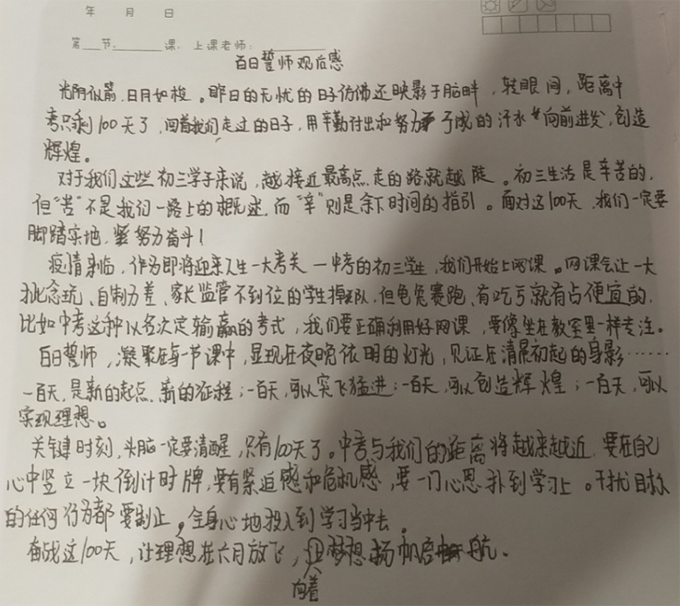 年 月 日
第 节 课 上课老师:
百日誓师观后感
光阴似箭,日月如梭。昨日的无忧的日子仿佛还映影于脑畔,转眼间,距离中
考只剩100天了,回首我们走过的日子,用辛勤付出和努力 成的汗水 向前进发,创造
辉煌。
对于我们这些初三学子来说,越接近最高点,走的路就越陡。初三生活是辛苦的,
但"苦"不是我们一路上的概述,而"辛"则是余下时间的指引。面对这100天,我们一定要
脚踏实地,努力奋斗!
疫情来临,作为即将迎来人生一大考关一中考的初三学生,我们开始上网课。网课会让一大
批贪玩、自制力差、家长监管不到位的学生掉队,但龟兔赛跑,有吃亏就有占便宜的,
比如中考这种以名次定输赢的考式,我们要正确利用好网课,要像坐在教室里一样专注。
百日誓师,凝聚在每一节课中,显现在夜晚依明的灯光,见证在清晨初起的身影……
一百天,是新的起点,新的征程;一百天,可以突飞猛进;一百天,可以创造辉煌;一百天,可以
实现理想。
关键时刻,头脑一定要清醒,只有100天了。中考与我们的距离将越来越近,要在自己
心中竖立一块倒计时牌,要有紧迫感和危机感,要一门心思扑到学习上。干扰目标
的任何行为都要制止,全身心地投入到学习当中去。
奋战这100天,让理想在六月放飞,让梦想扬帆启航。
向着